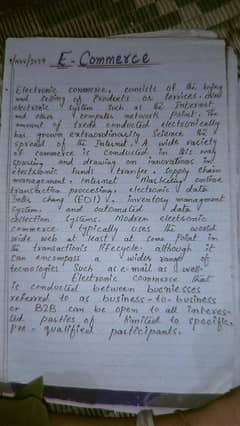 E-Commerce
Electronic commerce, consists of the buying
and selling of Products or Services over
electronic system such as the Internet
and other computer network point. The
amount of trade conducted electronically
has grown extraordinarily Science the
spread of the Internet. A wide variety
of commerce is conducted in this way
sparking and drawing on innovations in
electronic funds tranfer, supply chain
management, Internet Marketing online
transaction processing, electronic data
inter chang (EDI), inventory management
System, and automated data
collection Systems. Modern electronic
commerce typically uses the world
wide web at least at some point in
the transaction's lifecycle although it
can encompass a wider range of
tecnologies Such as e-mail as well-
Electronic commerce that
is conducted between businesses
referred to as business-to-business
or B2B can be open to all interes-
ted parties or limited to specific
pre-qualified participants.